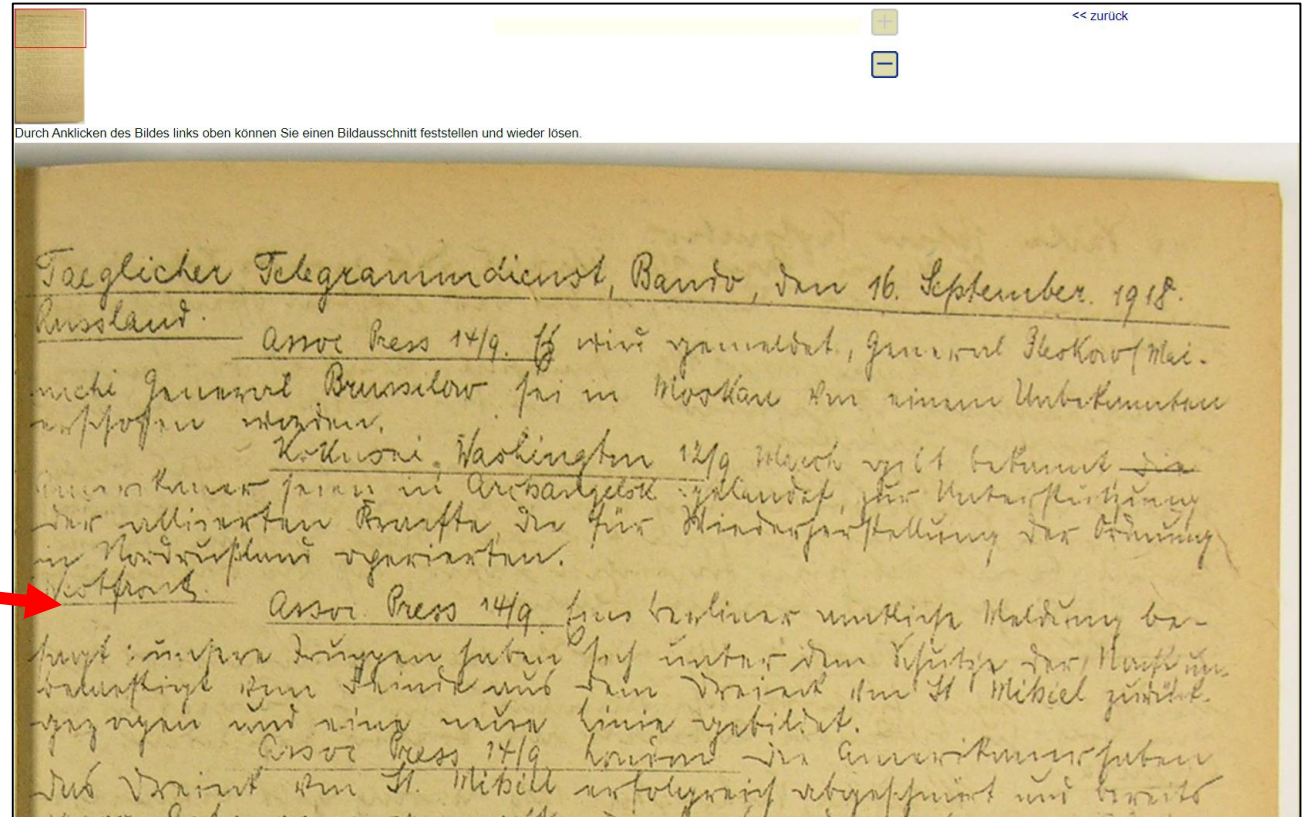 << zurück
Durch Anklicken des Bildes links oben können Sie einen Bildausschnitt feststellen und wieder lösen.
Taeglicher Telegrammdienst, Bando, den 16. September. 1918.
Russland.
Assoc Press 14/9. Es wird gemeldet, General (Mai-
nichi General Brussilow sei in Moskau von einem Unbekannten
erschossen worden.
Kokusai, Washington 12/9 March gibt bekannt die
Amerikaner seien in Archangelsk gelandet zur Unterstützung
der alliierten Kraefte, die für Wiederherstellung der Ordnung
in Nordrußland operierten.
Westfront.
Assoc. Press 14/9 Eine Berliner amtliche Meldung be-
sagt: unsere Truppen haben sich unter dem Schutze der Nacht un-
belaestigt vom Feinde aus dem Dreieck von St Mihiel zurück-
gezogen und eine neue Linie gebildet.
Assoc Press 14/9 London die Amerikaner haben
das Dreieck von St. Mihiel erfolgreich abgeschnürt und bereits